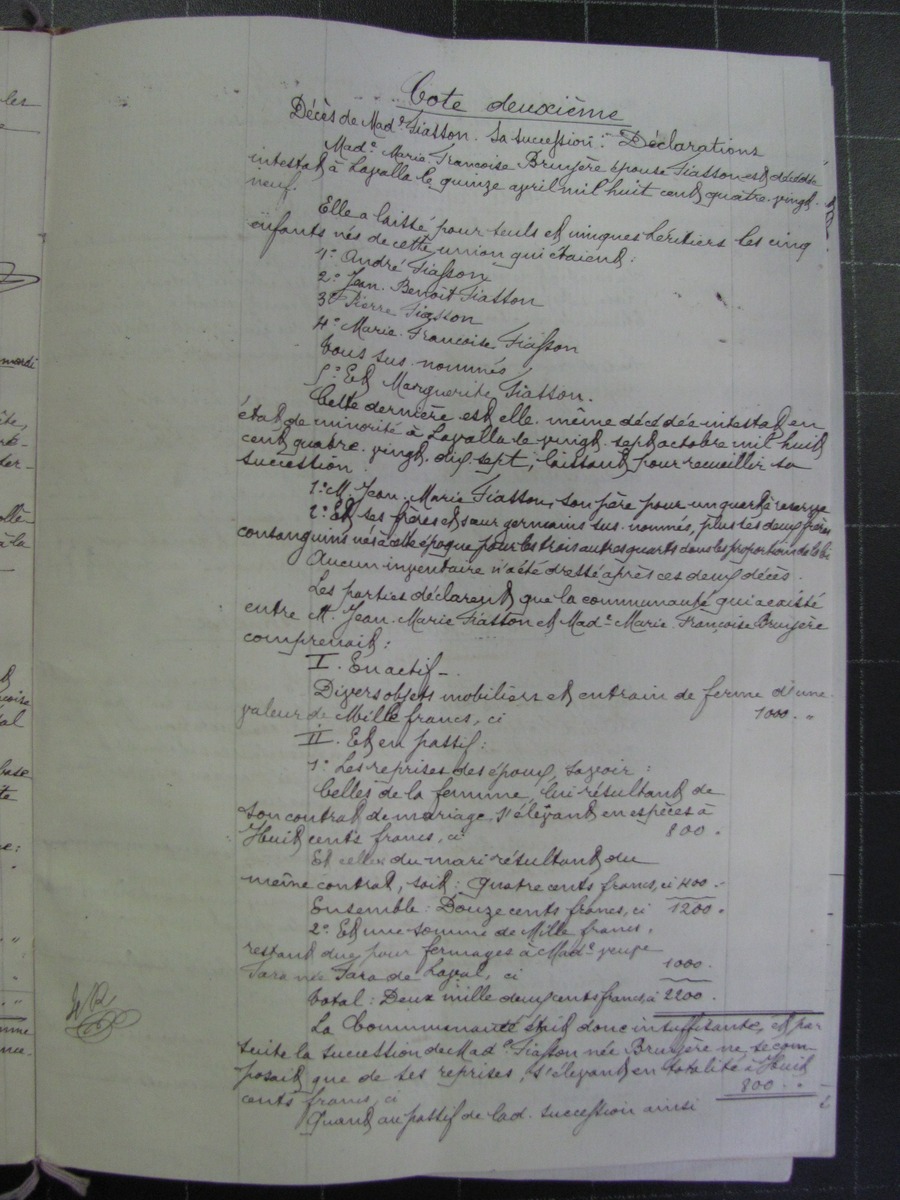 Cote deuxième
Décès de Made Fiasson. Sa succession : Déclarations
Made Marie Françoise Bruyère épouse Fiasson est décédée
intestat à Lavalla le quinze avril mil huit cent quatre-vingt-
neuf.
Elle a laissé pour seuls et uniques héritiers les cinq
enfants nés de cette union qui étaient :
1° André Fiasson
2° Jean-Benoît Fiasson
3° Pierre Fiasson
4° Marie-Françoise Fiasson
Tous sus-nommés
5° Et Marguerite Fiasson.
Cette dernière est elle-même décédée intestat en
état de minorité à Lavalla le vingt-sept octobre mil huit
cent quatre-vingt-dix-sept, laissant pour recueillir sa
succession
1° M. Jean-Marie Fiasson, son père pour un quart à réserve
2° Et ses frères et sœur germains sus-nommés, plus les deux frères
consanguins nés à cette époque pour les trois autres quarts dans les proportions de la loi
Aucun inventaire n'a été dressé après ces deux décès.
Les parties déclarent que la communauté qui a existé
entre M. Jean-Marie Fiasson et Made Marie Françoise Bruyère
comprenait :
I. En actif -
Divers objets mobiliers et entrain de ferme d'une
valeur de Mille francs, ci 1000. "
II. Et en passif :
1° Les reprises des époux, savoir :
Celles de la femme, lui résultant de
son contrat de mariage, s'élevant en espèces à
Huit cents francs, ci 800.
Et celles du mari résultant du
même contrat, soit : Quatre cents francs, ci 400.-
Ensemble : Douze cents francs, ci 1200.
2° Et une somme de Mille francs,
restant due pour fermages à Made veuve
née de Laval, ci 1000.
Total : Deux mille deux cents francs, ci 2200.
La Communauté était donc insuffisante, et par
suite la succession de Made Fiasson née Bruyère ne se com-
posait que de ses reprises, s'élevant en totalité à Huit
cents francs, ci 800. "
Quant au passif de lad. succession ainsi